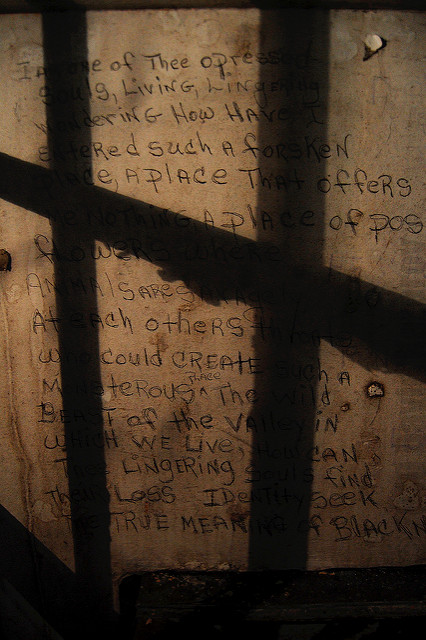 I AM ONE of Thee opressed
Souls, Living, Lingering
wondering How HAVE I
entered such A forsken
place, A place That offers
me NOTHING, A place of pos
flowers where
ANIMALS ARE
AT each others throats
who could CREATE such A
Monsterous place The wild
BEAST of the valley in
which WE Live, How CAN
These LINGERING Souls find
Their Loss IDentity seek
THE TRUE MEANING of BLACKN